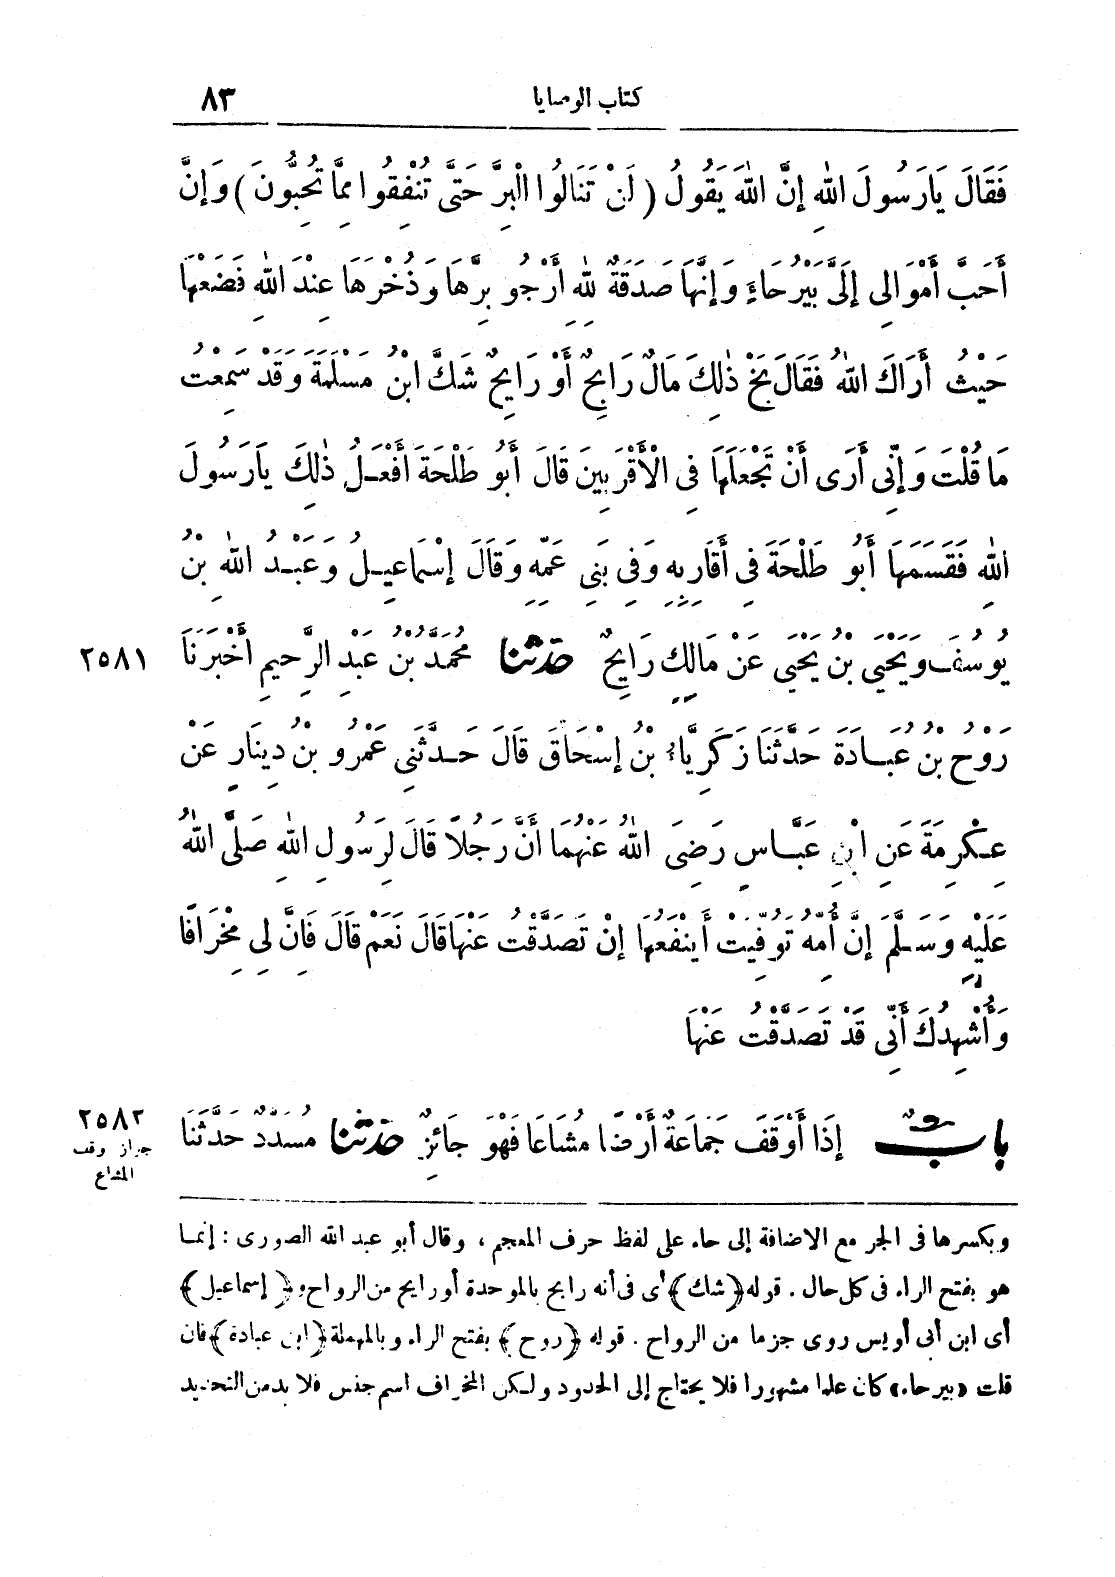 كتاب الوصايا ٨٣
فَقَالَ يَارَسُولَ اللهِ إِنَّ اللهَ يَقُولُ ( لَنْ تَنَالُوا الْبِرَّ حَتَّى تُنْفِقُوا مِمَّا تُحِبُّونَ ) وَإِنَّ
أَحَبَّ أَمْوَالِى إِلَىَّ بَيْرُحَاءَ وَإِنَّهَا صَدَقَةٌ لِلهِ أَرْجُو بِرَّهَا وَذُخْرَهَا عِنْدَ اللهِ فَضَعْهَا
حَيْثُ أَرَاكَ اللهُ فَقَالَ بَخْ ذٰلِكَ مَالٌ رَابِحٌ أَوْ رَايِحٌ شَكَّ ابْنُ مَسْلَمَةَ وَقَدْ سَمِعْتُ
مَا قُلْتَ وَإِنِّى أَرَى أَنْ تَجْعَلَهَا فِى الْأَقْرَبِينَ قَالَ أَبُو طَلْحَةَ أَفْعَلُ ذٰلِكَ يَارَسُولَ
اللهِ فَقَسَمَهَا أَبُو طَلْحَةَ فِى أَقَارِبِهِ وَفِى بَنِى عَمِّهِ وَقَالَ إِسْمَاعِيلُ وَعَبْدُ اللهِ بْنُ
يُوسُفَ وَيَحْيَى بْنُ يَحْيَى عَنْ مَالِكٍ رَايِحٌ حَدَّثَنَا مُحَمَّدُ بْنُ عَبْدِ الرَّحِيمِ أَخْبَرَنَا ٢٥٨١
رَوْحُ بْنُ عُبَادَةَ حَدَّثَنَا زَكَرِيَّاءُ بْنُ إِسْحَاقَ قَالَ حَدَّثَنِى عَمْرُو بْنُ دِينَارٍ عَنْ
عِكْرِمَةَ عَنِ ابْنِ عَبَّاسٍ رَضِىَ اللهُ عَنْهُمَا أَنَّ رَجُلًا قَالَ لِرَسُولِ اللهِ صَلَّى اللهُ
عَلَيْهِ وَسَلَّمَ إِنَّ أُمَّهُ تُوُفِّيَتْ أَيَنْفَعُهَا إِنْ تَصَدَّقْتُ عَنْهَا قَالَ نَعَمْ قَالَ فَإِنَّ لِى مِخْرَافًا
وَأُشْهِدُكَ أَنِّى قَدْ تَصَدَّقْتُ عَنْهَا
بَابٌ إِذَا أَوْقَفَ جَمَاعَةٌ أَرْضًا مُشَاعًا فَهُوَ جَائِزٌ حَدَّثَنَا مُسَدَّدٌ حَدَّثَنَا ٢٥٨٢
جواز وقف
المشاع
وبكسرها فى الجر مع الاضافة إلى حاء على لفظ حرف المعجم ، وقال أبو عبد الله الصورى : إنما
هو بفتح الراء فى كل حال . قوله ﴿شك﴾ أى فى أنه رابح بالموحدة أو رايح من الرواح و﴿إسماعيل﴾
أى ابن أبى أويس روى جزما من الرواح . قوله ﴿روح﴾ بفتح الراء وبالمهملة ﴿ابن عبادة﴾ فان
قلت «بيرحاء» كان علما مشهورا فلا يحتاج إلى الحدود ولكن المخراف اسم جنس فلا بد من التحديد